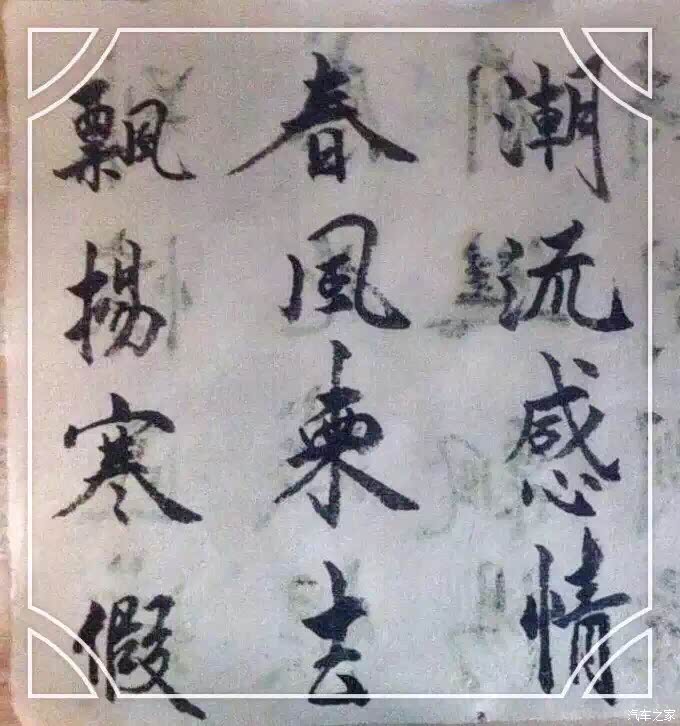 潮流感情
春風柬去
飄揚寒假
汽车之家